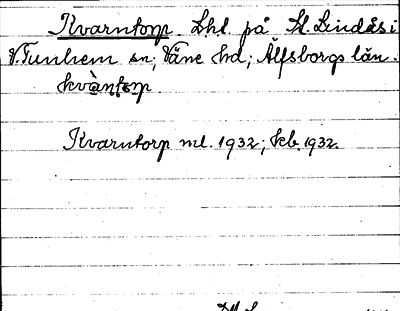 Kvarntorp Lht. på St. Lindås i
V. Tunhem sn; Väne hd; Älfsborgs län.
kvà̀ntɔrp
Kvarntorp ml. 1932; kb. 1932.